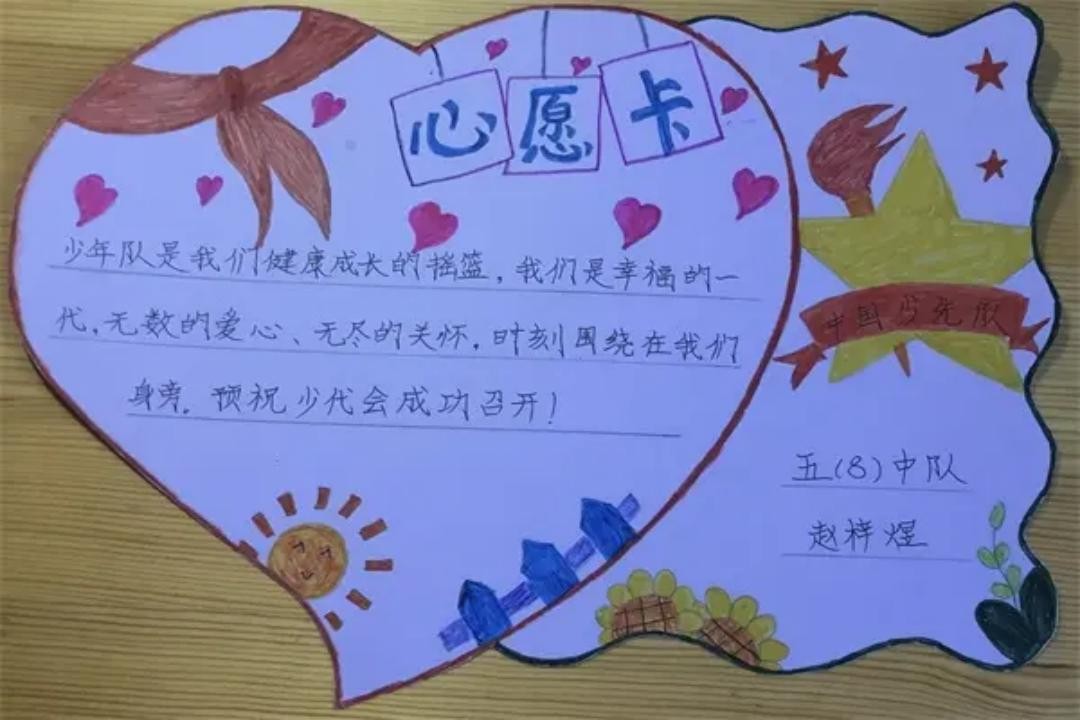 心愿卡
少年队是我们健康成长的摇篮，我们是幸福的一
代，无数的爱心、无尽的关怀，时刻围绕在我们
身旁。预祝少代会成功召开！
中国少先队
五(8)中队
赵梓煜